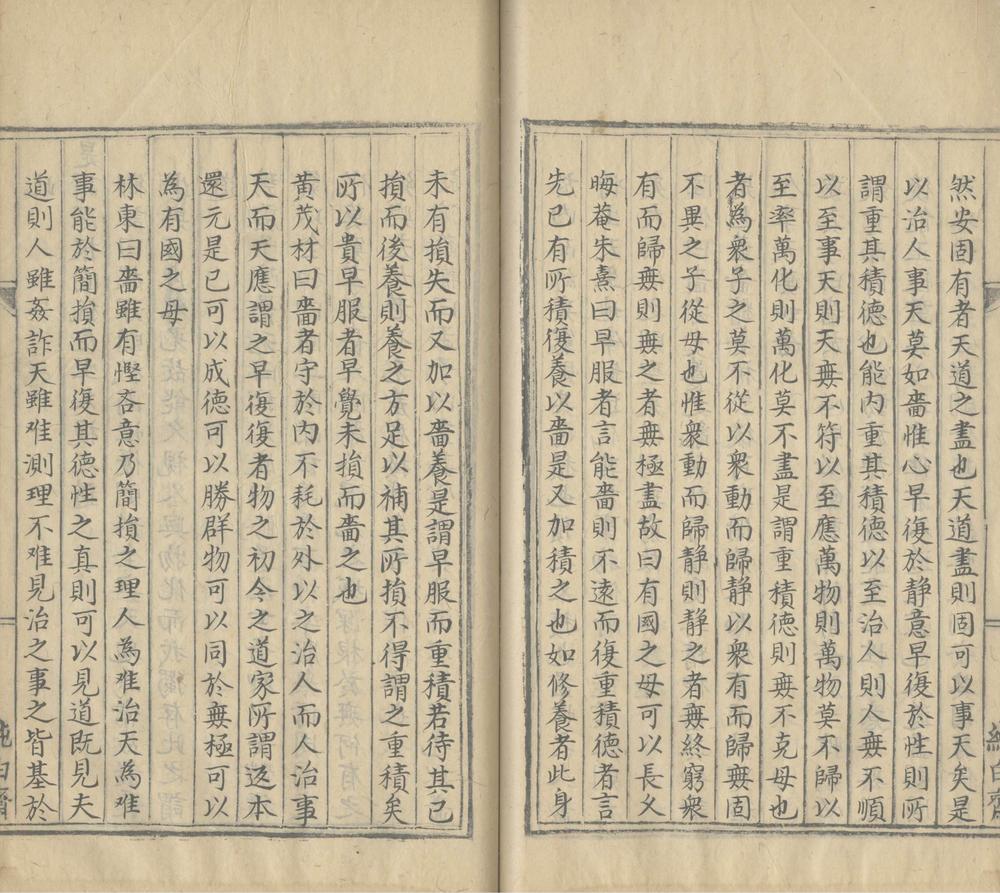 然安固有者天道之盡也天道盡則固可以事天矣是
以治人事天莫如嗇惟心早復於静意早復於性則所
謂重其積德也能内重其積德以至治人則人無不順
以至事天則天無不符以至應萬物則萬物莫不歸以
至率萬化則萬化莫不盡是謂重積德則無不克母也
者為衆子之莫不從以衆動而歸静以衆有而歸無固
不異之子從母也惟衆動而歸静則静之者無終窮衆
有而歸無則無之者無極盡故曰有國之母可以長久
晦菴朱熹曰早服者言能嗇則不遠而復重積德者言
先已有所積復養以嗇是又加積之也如修養者此身
未有損失而又加以嗇養是謂早服而重積若待其已
損而後養則養之方足以補其所損不得謂之重積矣
所以貴早服者早覺未損而嗇之也
黄茂材曰嗇者守於内不耗於外以之治人而人治事
天而天應謂之早復者物之初今之道家所謂返本
還元是已可以成德可以勝群物可以同於無極可以
為有國之母
林東曰嗇雖有慳吝意乃簡損之理人為难治天為难
事能於簡損而早復其德性之真則可以見道既見夫
道則人雖姦詐天雖难測理不难見治之事之皆基於